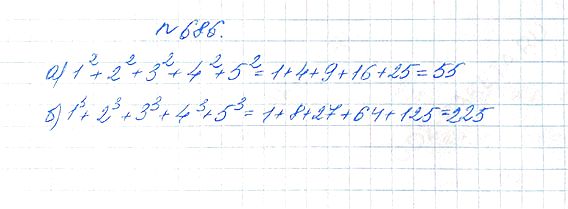 №686.
а) 1² + 2² + 3² + 4² + 5² = 1+4+9+16+25=55
б) 1³ + 2³ + 3³ + 4³ + 5³ = 1+8+27+64+125=225